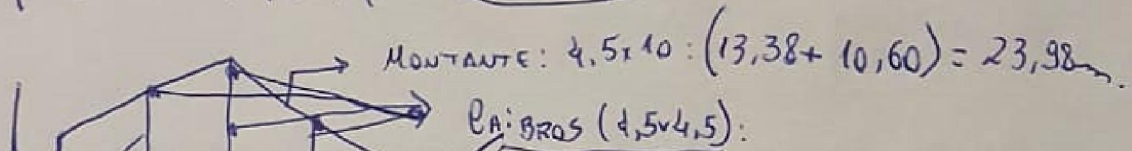 MONTANTE: 4,5x10: (13,38+ 10,60) = 23,98m.
CAiBROS (4,5x4,5):